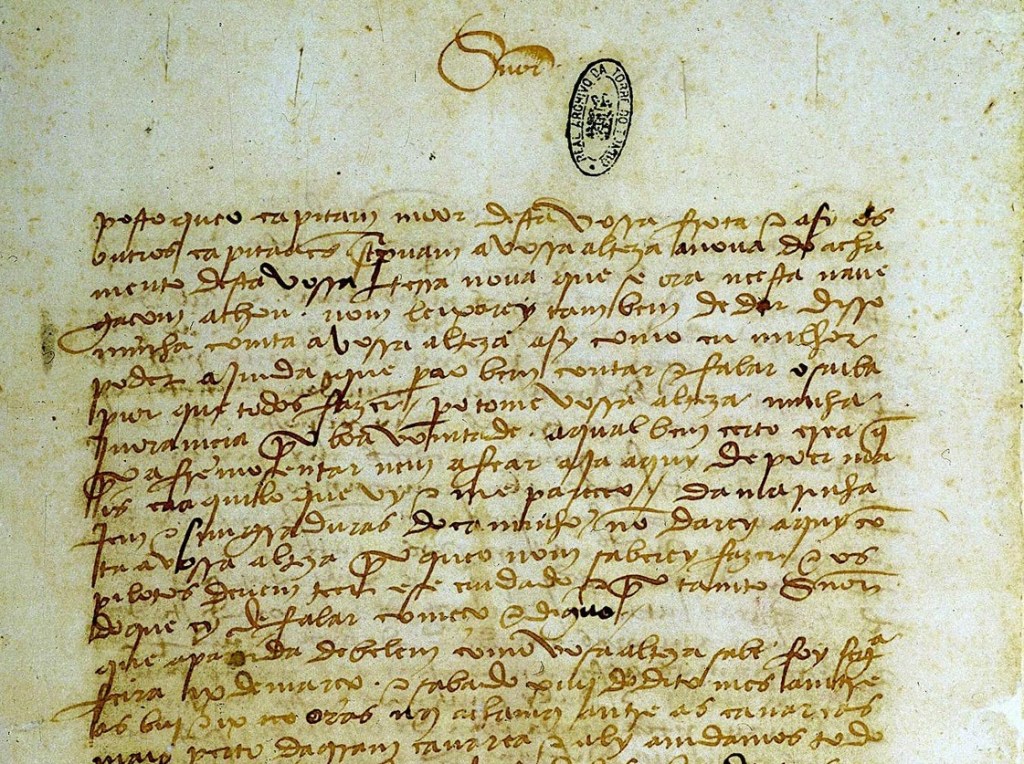 Snor
posto queo capitam moor desta vossa frota e asy os
outros capitaães screpuam avossa alteza anoua do acha
mento desta vossa terra noua que se ora neesta naue
gaçom achou. nom leixarey tambem de dar disso
minha comta avossa alteza asy como eu milhor
poder ajmda que pera o bem contar e falar o saiba
pior que todos fazer / pero tome vossa alteza minha
jnoramçia por boa vomtade. aqual bem çerto crea q̃
por afremosentar nem afear aja aquy de poer ma
is ca aquilo que vy e me pareçeo / da marinha
jem e simgraduras do caminho / nõ darey aquy cõ
ta avossa alteza por queo nom saberey fazer e os
pilotos deuem teer ese cuidado e por tamto Snõr
do que ey de falar começo e diguo /
que apartida debelem como vosa alteza sabe foy segª
feira ix demarço. e sabado xiiij do dito mes amtre
as biij e ix oras nos achamos antre as canareas
mais perto dagram canarea e aly amdamos todo
REAL ARCHIVO DA TORRE DO TOMBO